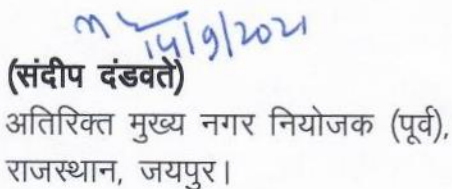 14/9/2021
(संदीप दंडवते)
अतिरिक्त मुख्य नगर नियोजक (पूर्व),
राजस्थान, जयपुर।